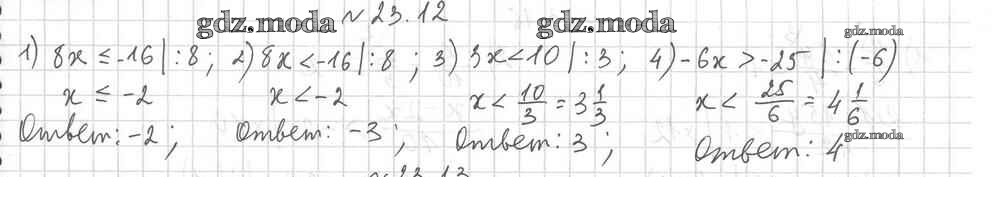 № 23.12
gdz.moda gdz.moda gdz.moda
1) 8x ≤ -16 | :8 ; 2) 8x < -16 | :8 ; 3) 3x < 10 | :3 ; 4) -6x > -25 | :(-6)
x ≤ -2 x < -2 x < 10/3 = 3 1/3 x < 25/6 = 4 1/6
gdz.moda
Ответ: -2 ; Ответ: -3 ; Ответ: 3 ; Ответ: 4
№ 23.13